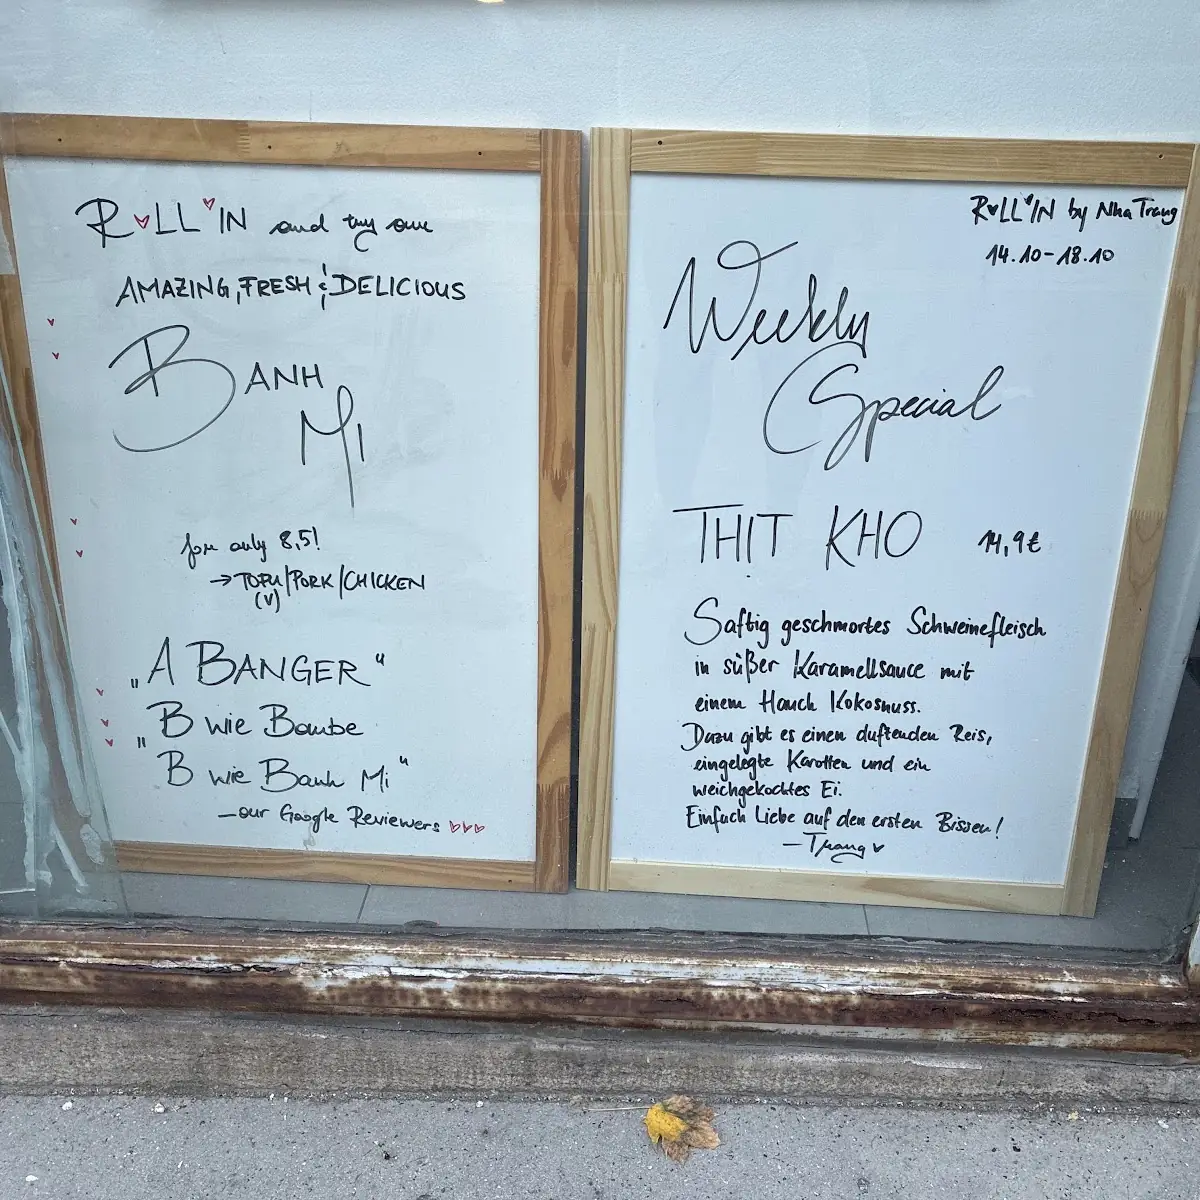 R♥LL♥IN and try our
AMAZING, FRESH & DELICIOUS
BANH
MI
for only 8,5!
→ TOFU/PORK/CHICKEN
(V)
„A BANGER“
„B wie Bombe
B wie Banh Mi“
—our Google Reviewers ♥♥♥
R♥LL♥IN by Nha Trang
14.10-18.10
Weekly
Special
THỊT KHO 14,9€
Saftig geschmortes Schweinefleisch
in süßer Karamellsauce mit
einem Hauch Kokosnuss.
Dazu gibt es einen duftenden Reis,
eingelegte Karotten und ein
weichgekochtes Ei.
Einfach Liebe auf den ersten Bissen!
—Trang ♥